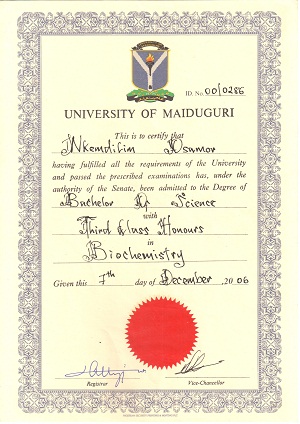 ID. No. 00/0286
UNIVERSITY OF MAIDUGURI
This is to certify that
Nkemdilim Osamor
having fulfilled all the requirements of the University
and passed the prescribed examinations has, under
the authority of the Senate, been admitted to the Degree of
Bachelor Of Science
with
Third Class Honours
in
Biochemistry
Given this 7th day of December, 2006
Registrar Vice-Chancellor